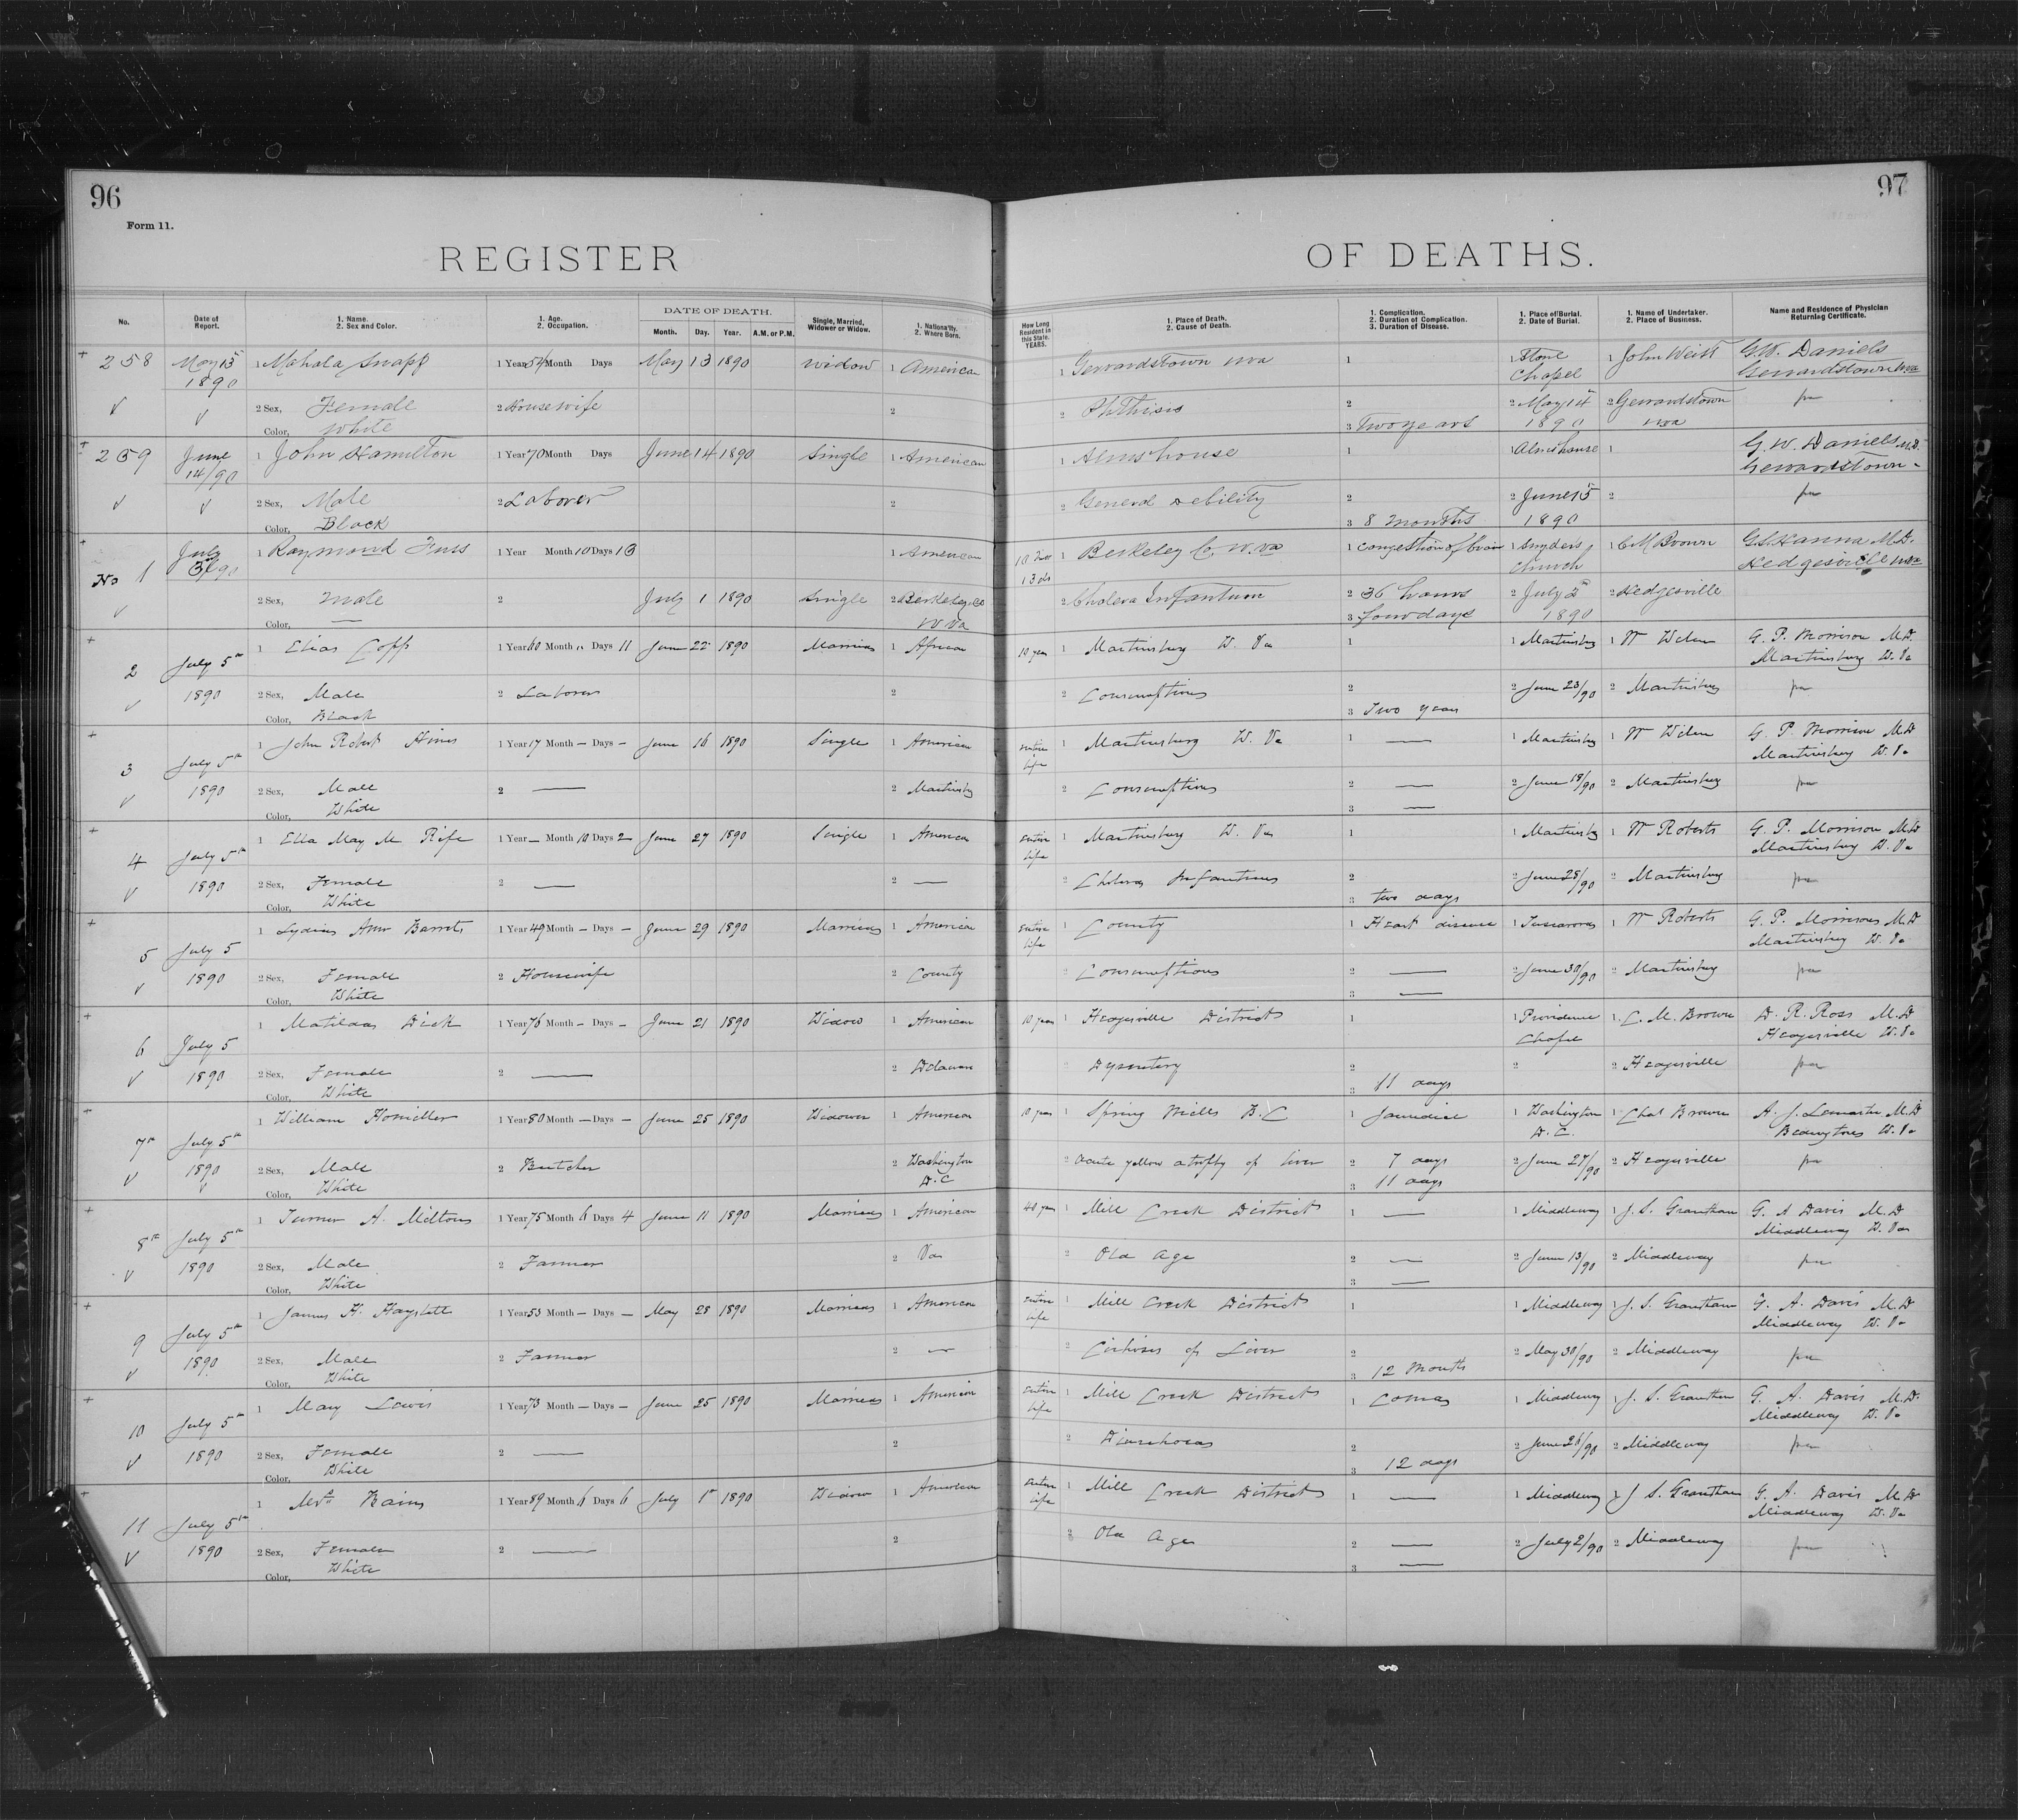 96
97
Form 11.
REGISTER OF DEATHS.
No. Date of Report. 1. Name. 2. Sex and Color. 1. Age. 2. Occupation. DATE OF DEATH. Month. Day. Year. A.M. or P.M. Single, Married, Widower or Widow. 1. Nationality. 2. Where Born. How Long Resident in this State. YEARS. 1. Place of Death. 2. Cause of Death. 1. Complication. 2. Duration of Complication. 3. Duration of Disease. 1. Place of Burial. 2. Date of Burial. 1. Name of Undertaker. 2. Place of Business. Name and Residence of Physician Returning Certificate.
258 May 15 1890 1 Mahala Snapp 1 Year 54 Month Days May 13 1890 Widow 1 American 1 Gerrardstown Wva 1 1 Stone Chapel 1 John Weist G.W. Daniels Gerrardstown Wva
2 Sex, Female 2 Housewife 2 2 Phthisis 2 2 May 14 1890 2 Gerrardstown Wva
Color, White 3 Two years
259 June 14/90 1 John Hamilton 1 Year 70 Month Days June 14 1890 Single 1 American 1 Almshouse 1 1 Almshouse 1 G.W. Daniels M.D. Gerrardstown
2 Sex, Male 2 Laborer 2 2 General debility 2 2 June 15 1890 2
Color, Black 3 8 Months
No 1 July 90 1 Raymond 1 Year Month 10 Days 13 1 American 1 Berkeley Co W.va 1 Congestion of brain 1 Snyders Church 1 C M Brown Hanna M.D. Hedgesville Wva
2 Sex, Male 2 July 1 1890 Single 2 Berkeley Co W Va 2 Cholera Infantum 2 36 hours 2 July 2 1890 2 Hedgesville
Color, — 3 four days
2 July 5th 1890 1 Elias Copp 1 Year 40 Month " Days 11 June 22 1890 Married 1 African 10 year 1 Martinsburg W. Va 1 1 Martinsburg 1 Wm Wilen G. P. Morrison M.D. Martinsburg W. Va
2 Sex, Male 2 Laborer 2 2 Consumption 2 2 June 23/90 2 Martinsburg
Color, Black 3 Two years
3 July 5th 1890 1 John Robert Hines 1 Year 17 Month — Days — June 16 1890 Single 1 American entire life 1 Martinsburg W. Va 1 — 1 Martinsburg 1 Wm Wilen G. P. Morrison M.D Martinsburg W. Va
2 Sex, Male 2 — 2 Martinsburg 2 Consumption 2 — 2 June 18/90 2 Martinsburg
Color, White 3 —
4 July 5th 1890 1 Ella May M Rife 1 Year — Month 10 Days 2 June 27 1890 Single 1 American entire life 1 Martinsburg W. Va 1 1 Martinsburg 1 Wm Roberts G. P. Morrison M.D Martinsburg W. Va
2 Sex, Female 2 — 2 — 2 Cholera Infantum 2 2 June 28/90 2 Martinsburg
Color, White 3 two days
5 July 5 1890 1 Lydia Ann Barrett 1 Year 49 Month — Days — June 29 1890 Married 1 American entire life 1 County 1 Heart disease 1 Tuscarora 1 Wm Roberts G. P. Morrison M.D Martinsburg W. Va
2 Sex, Female 2 Housewife 2 County 2 Consumption 2 — 2 June 30/90 2 Martinsburg
Color, White 3 —
6 July 5 1890 1 Matilda Dick 1 Year 76 Month — Days — June 21 1890 Widow 1 American 10 years 1 Hedgesville District 1 1 Providence Chapel 1 C. M. Brown D. R. Ross M.D Hedgesville W. Va
2 Sex, Female 2 — 2 Delaware 2 Dysentery 2 2 2 Hedgesville
Color, White 3 11 days
7th July 5th 1890 1 William Homiller 1 Year 80 Month — Days — June 25 1890 Widower 1 American 10 years 1 Spring Mills B. C 1 Jaundice 1 Washington D. C. 1 Chas Brown A. J. Lemaster M.D Bedington W. Va
2 Sex, Male 2 Butcher 2 Washington D. C 2 Acute yellow atrophy of liver 2 7 days 2 June 27/90 2 Hedgesville
Color, White 3 11 days
8th July 5th 1890 1 Turner A. Milton 1 Year 75 Month 6 Days 4 June 11 1890 Married 1 American 40 years 1 Mill Creek District 1 — 1 Middleway 1 J. S. Grantham G. A Davis M.D Middleway W. Va
2 Sex, Male 2 Farmer 2 Va 2 Old Age 2 — 2 June 13/90 2 Middleway
Color, White 3 —
9 July 5th 1890 1 James H. Hayslett 1 Year 53 Month — Days — May 28 1890 Married 1 American entire life 1 Mill Creek District 1 1 Middleway 1 J. S. Grantham G. A. Davis M.D Middleway W. Va
2 Sex, Male 2 Farmer 2 — 2 Cirhosis of Liver 2 2 May 30/90 2 Middleway
Color, White 3 12 Month
10 July 5th 1890 1 Mary Lewis 1 Year 73 Month — Days — June 25 1890 Married 1 American entire life 1 Mill Creek District 1 Coma 1 Middleway 1 J. S. Grantham G. A. Davis M.D. Middleway W. Va
2 Sex, Female 2 — 2 2 Diarrhoea 2 2 June 26/90 2 Middleway
Color, White 3 12 days
11 July 5th 1890 1 Mrs 1 Year 89 Month 6 Days 6 July 1st 1890 Widow 1 American entire life 1 Mill Creek District 1 — 1 Middleway 1 J S. Grantham G. A. Davis M.D Middleway W. Va
2 Sex, Female 2 — 2 2 Old Age 2 — 2 July 2/90 2 Middleway
Color, White 3 —